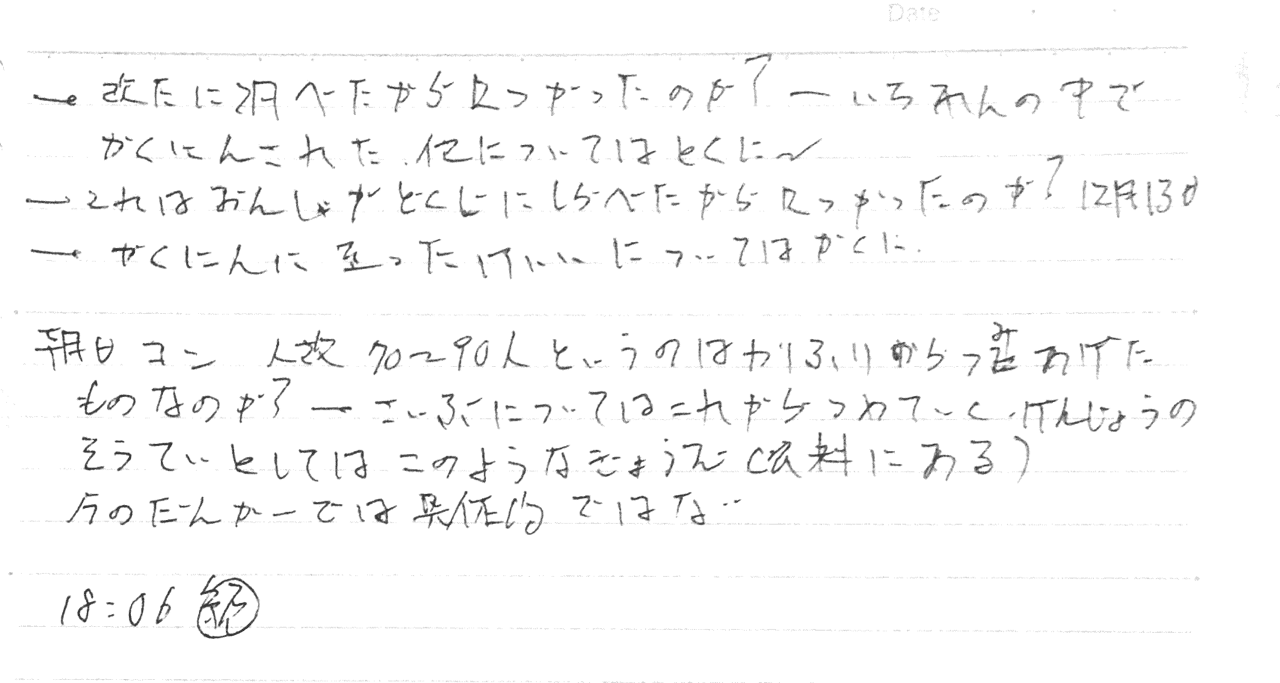 Date
→ 改たに調べたから見つかったのか? ー いちれんの中で
かくにんされた. 他についてはとくに〜
→ これはおんしゃがどくじにしらべたから見つかったのか? 12月13日
→ かくにんに至ったけいいについてはかくに.
朝日コン 人数 70〜90人というのはわりふりからつみあげた
ものなのか? ー さいぶについてはこれからつめていく. げんじょうの
そうていとしてはこのような (資料にある)
今のだんかいでは具体的ではない
18:06 終